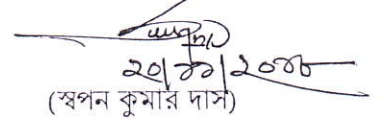 ২০/১১/২০১৮
(স্বপন কুমার দাস)